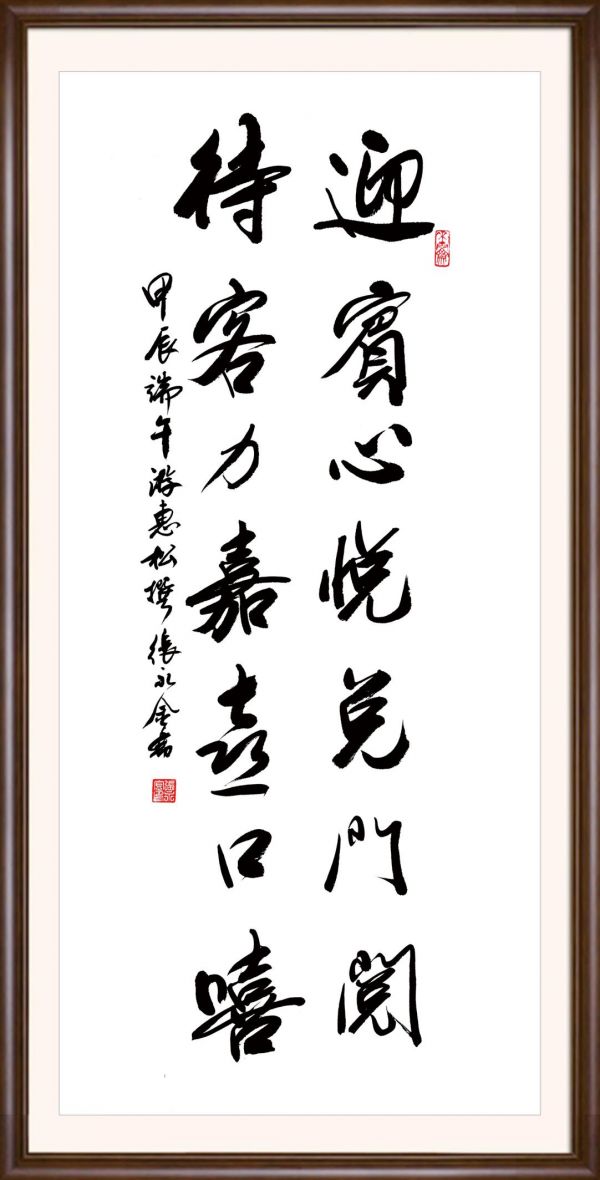 迎賓心悅兌門閱
待客力嘉喜口嘻
甲辰端午游惠松撰張永金書